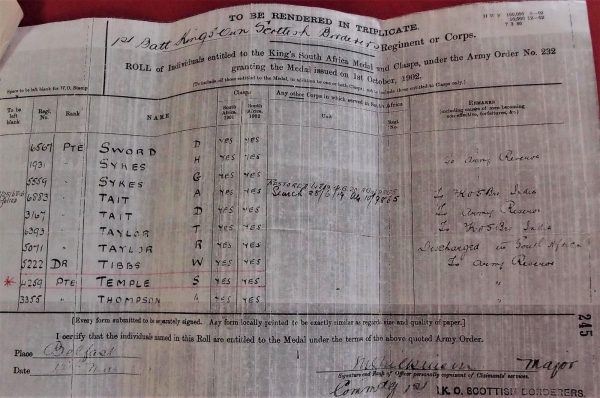 TO BE RENDERED IN TRIPLICATE.
1st Batt King's Own Scottish Borderers Regiment or Corps.
ROLL of Individuals entitled to the King's South Africa Medal and Clasps, under the Army Order No. 232
granting the Medal issued on 1st October, 1902.
Space to be left blank for W.O. Stamp
To be left blank
Regl. No.
Rank
NAME
Clasps
South Africa 1901
South Africa 1902
Any other Corps in which served in South Africa
Unit
Regl. No.
REMARKS
6567 PTE SWORD D YES YES
1931 " SYKES H YES YES To Army Reserve
5559 " SYKES G YES YES
6883 " TAIT A YES YES To KOSBrs India
3167 " TAIT D YES YES To Army Reserve
6393 " TAYLOR T YES YES To KOSBrs India
5071 " TAYLOR R YES YES Discharged in South Africa
5222 DR TIBBS W YES YES To Army Reserve
* 4259 PTE TEMPLE S YES YES "
3355 " THOMPSON YES YES "
[Every form submitted to be separately signed. Any form locally printed to be exactly similar as regards size and quality of paper.]
245
I certify that the individuals named in this Roll are entitled to the Medal under the terms of the above quoted Army Order.
Place Belfast
Date
Major
Signature and Rank of Officer personally cognisant of Claimants' services.
Commdg 1st K. O. SCOTTISH BORDERERS.